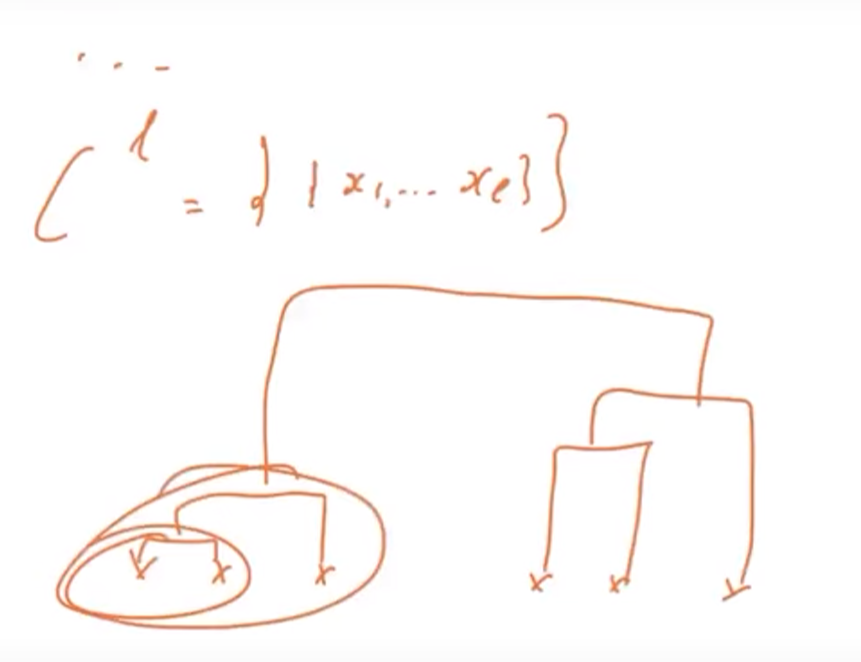 ...
C^l = { { x₁, ... x_l } }
x x x x x x